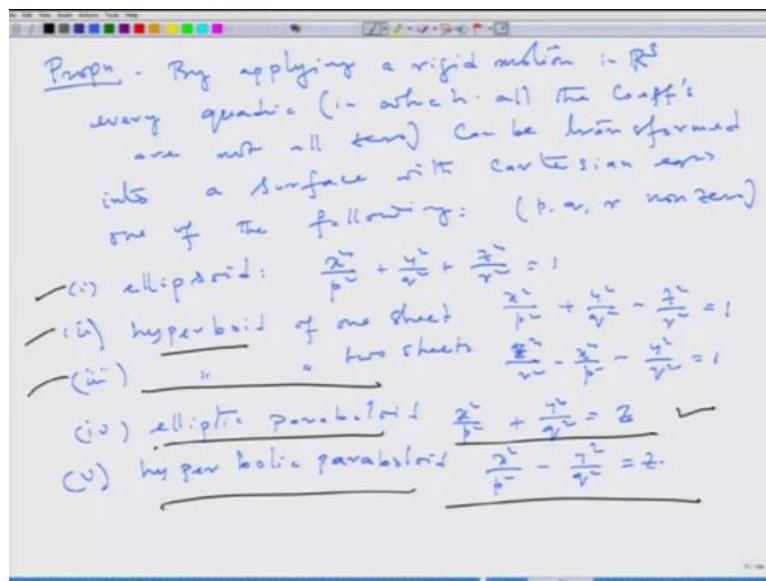 Propn - By applying a rigid motion in R³
every quadric (in which all the coeff's
are not all zero) can be transformed
into a surface with cartesian eqns
one of the following: (p, q, r non zero)
(i) ellipsoid: x²/p² + y²/q² + z²/r² = 1
(ii) hyperboid of one sheet x²/p² + y²/q² - z²/r² = 1
(iii) " " two sheets z²/r² - x²/p² - y²/q² = 1
(iv) elliptic paraboloid x²/p² + y²/q² = z
(v) hyperbolic paraboloid x²/p² - y²/q² = z.